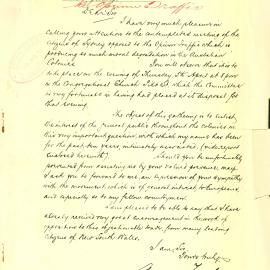 Opium Traffic
Dear Sir
I have very much pleasure in
calling your attention to the contemplated meeting of the
citizens of Sydney opposed to the Opium Traffic which is
producing so much moral degradation in the Australian
Colonies
You will observe that it is to
take place on the evening of Thursday 5th April at 8 pm
in the Congregational Church Pitt St, which the Committee
is very fortunate in having had placed at its disposal for
that evening.
The object of this gathering is to enlist
the interest of the general public throughout the colonies in
this very important question with which my name has been
for the past ten years intimately associated, (vide report
enclosed herewith)
Should you be unfortunately
prevented from assisting us by your valued presence may
I ask you to forward to me an expression of your sympathy
with the movement which is of general interest to Europeans
and especially so to my fellow countrymen.
I am pleased to be able to say that I have
already received very great encouragement in the work of
opposition to this objectionable trade, from many leading
citizens of New South Wales.
I am, Sir,
Yours truly